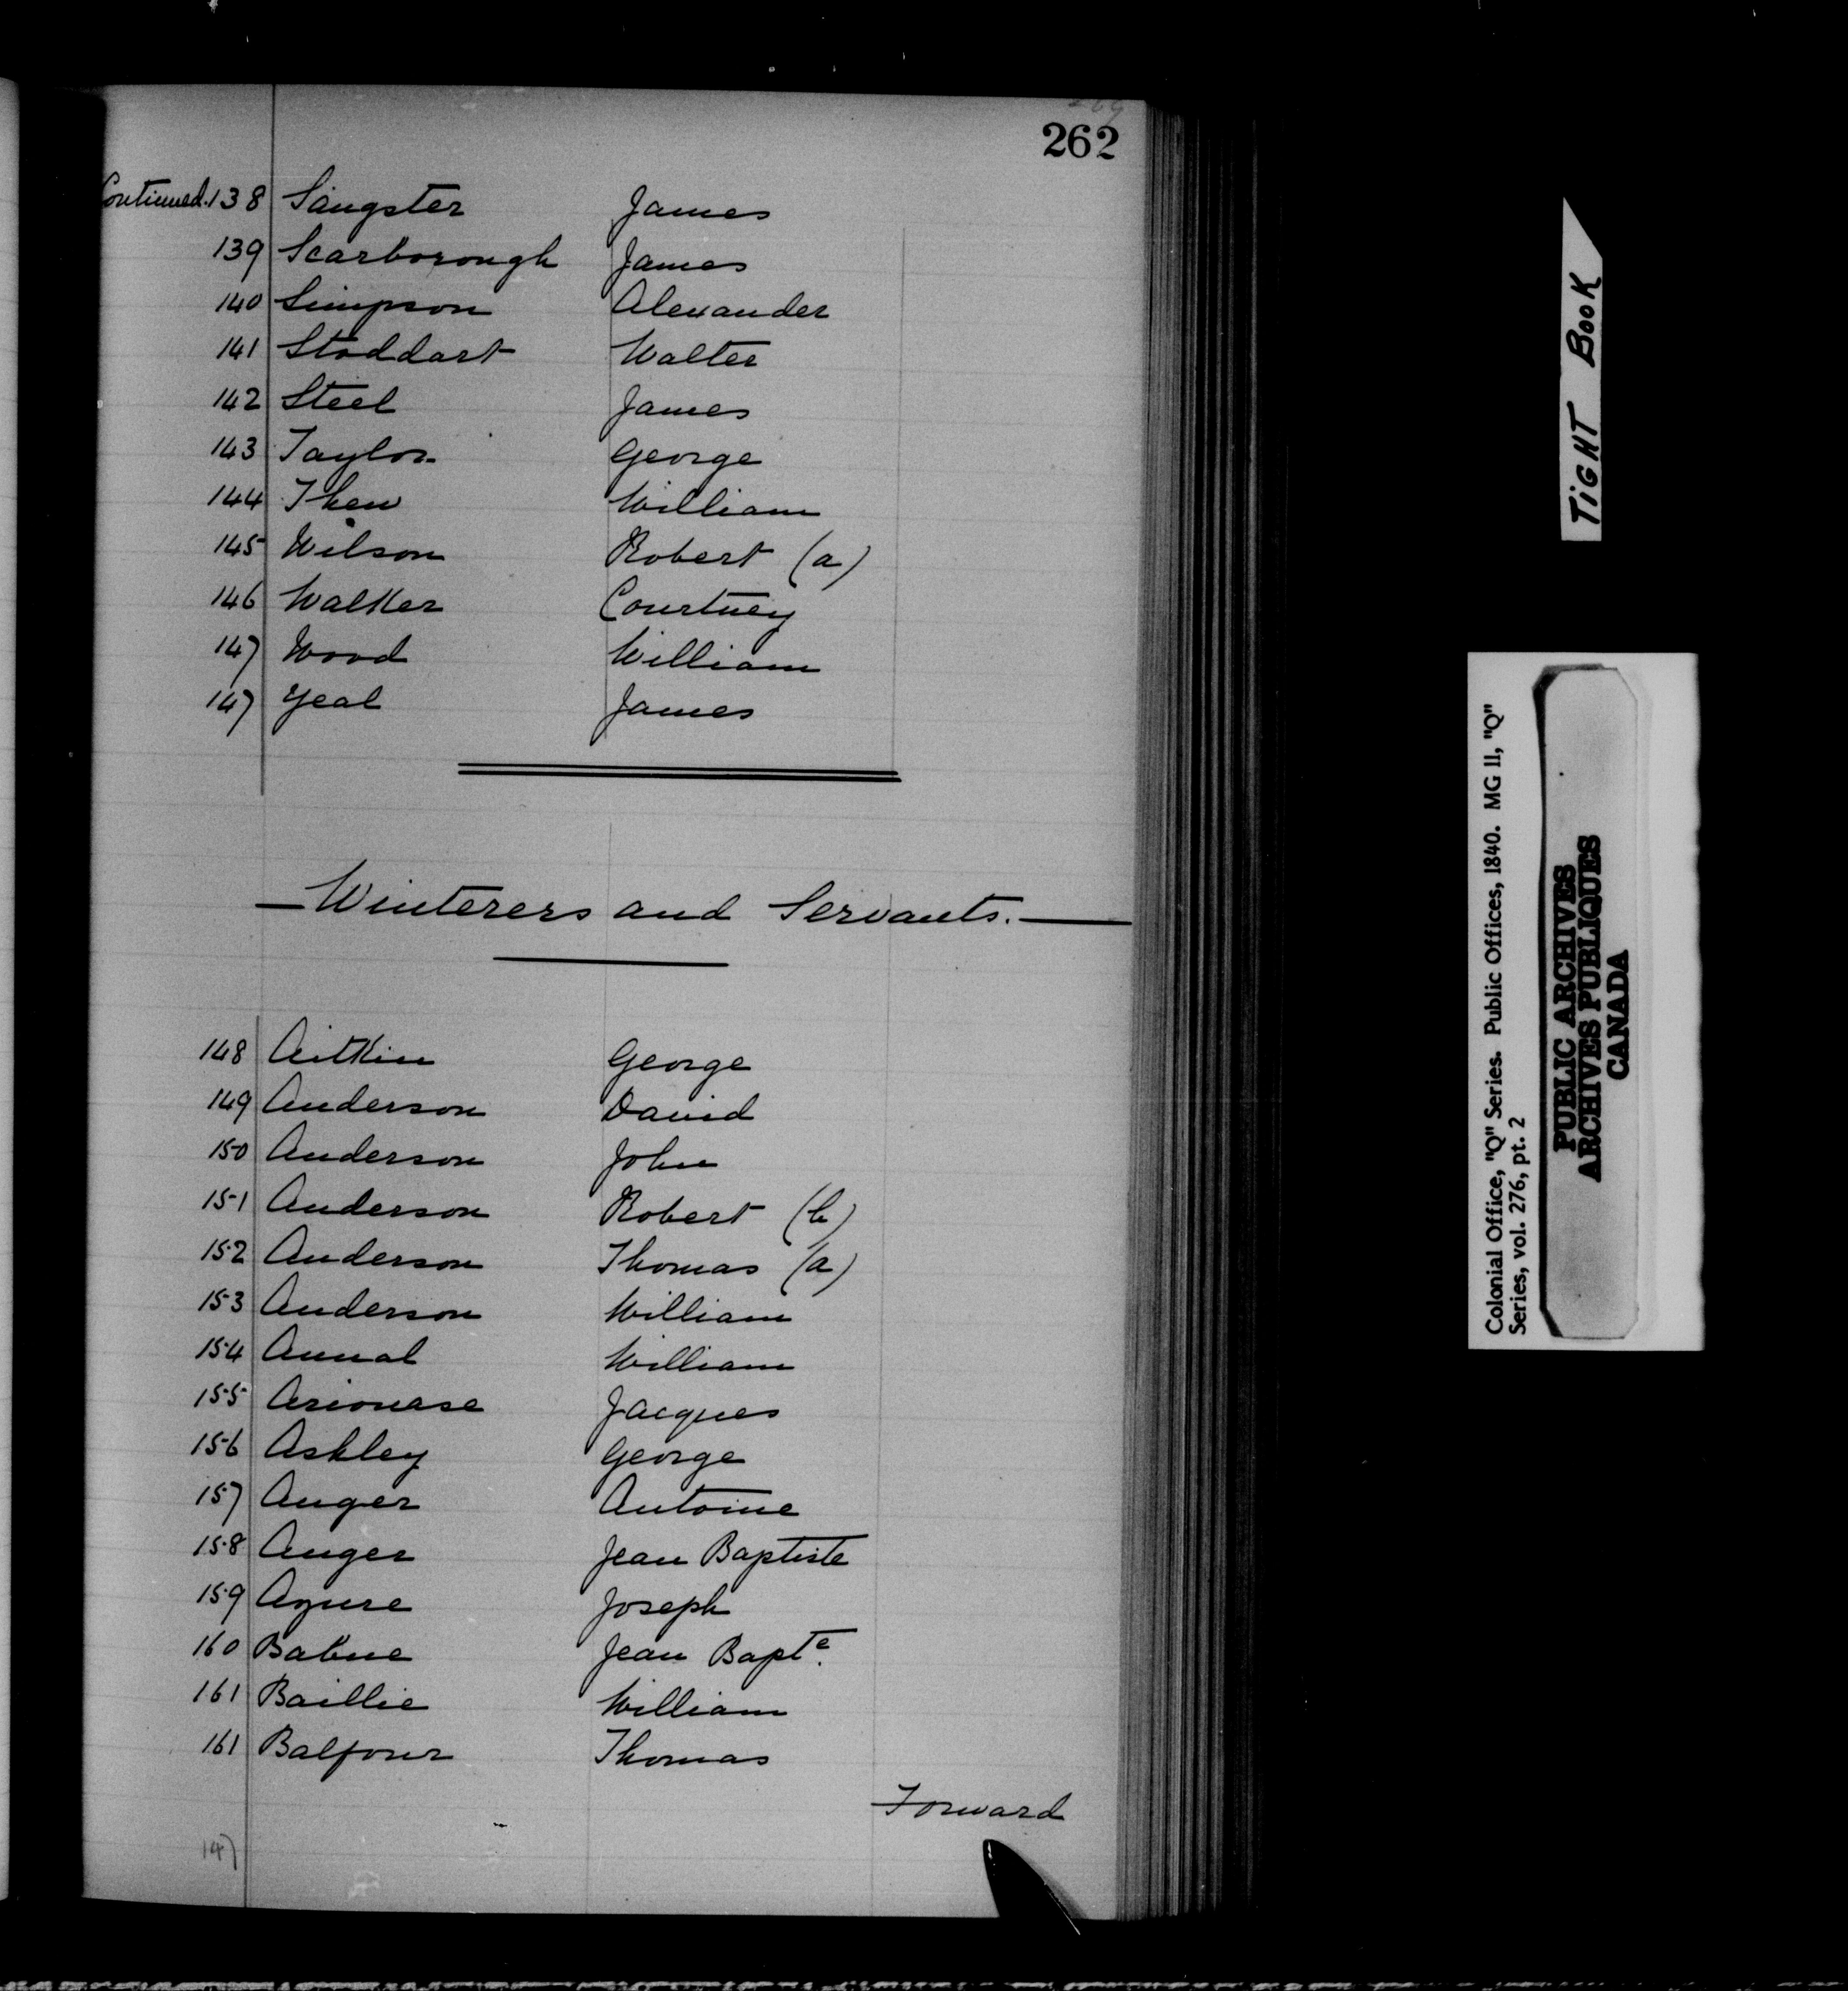 262
Continued. 138 Sangster James
139 Scarborough James
140 Simpson Alexander
141 Stoddart Walter
142 Steel James
143 Taylor George
144 Thew William
145 Wilson Robert (a)
146 Walker Courtney
147 Wood William
147 Yeal James
Winterers and Servants.
148 Aitkin George
149 Anderson David
150 Anderson John
151 Anderson Robert (b)
152 Anderson Thomas (a)
153 Anderson William
154 Annal William
155 Arionase Jacques
156 Ashley George
157 Auger Antoine
158 Auger Jean Baptiste
159 Azure Joseph
160 Babue Jean Bapte.
161 Baillie William
161 Balfour Thomas
Forward
147
TIGHT BOOK
Colonial Office, "Q" Series. Public Offices, 1840. MG 11, "Q"
Series, vol. 276, pt. 2
PUBLIC ARCHIVES
ARCHIVES PUBLIQUES
CANADA